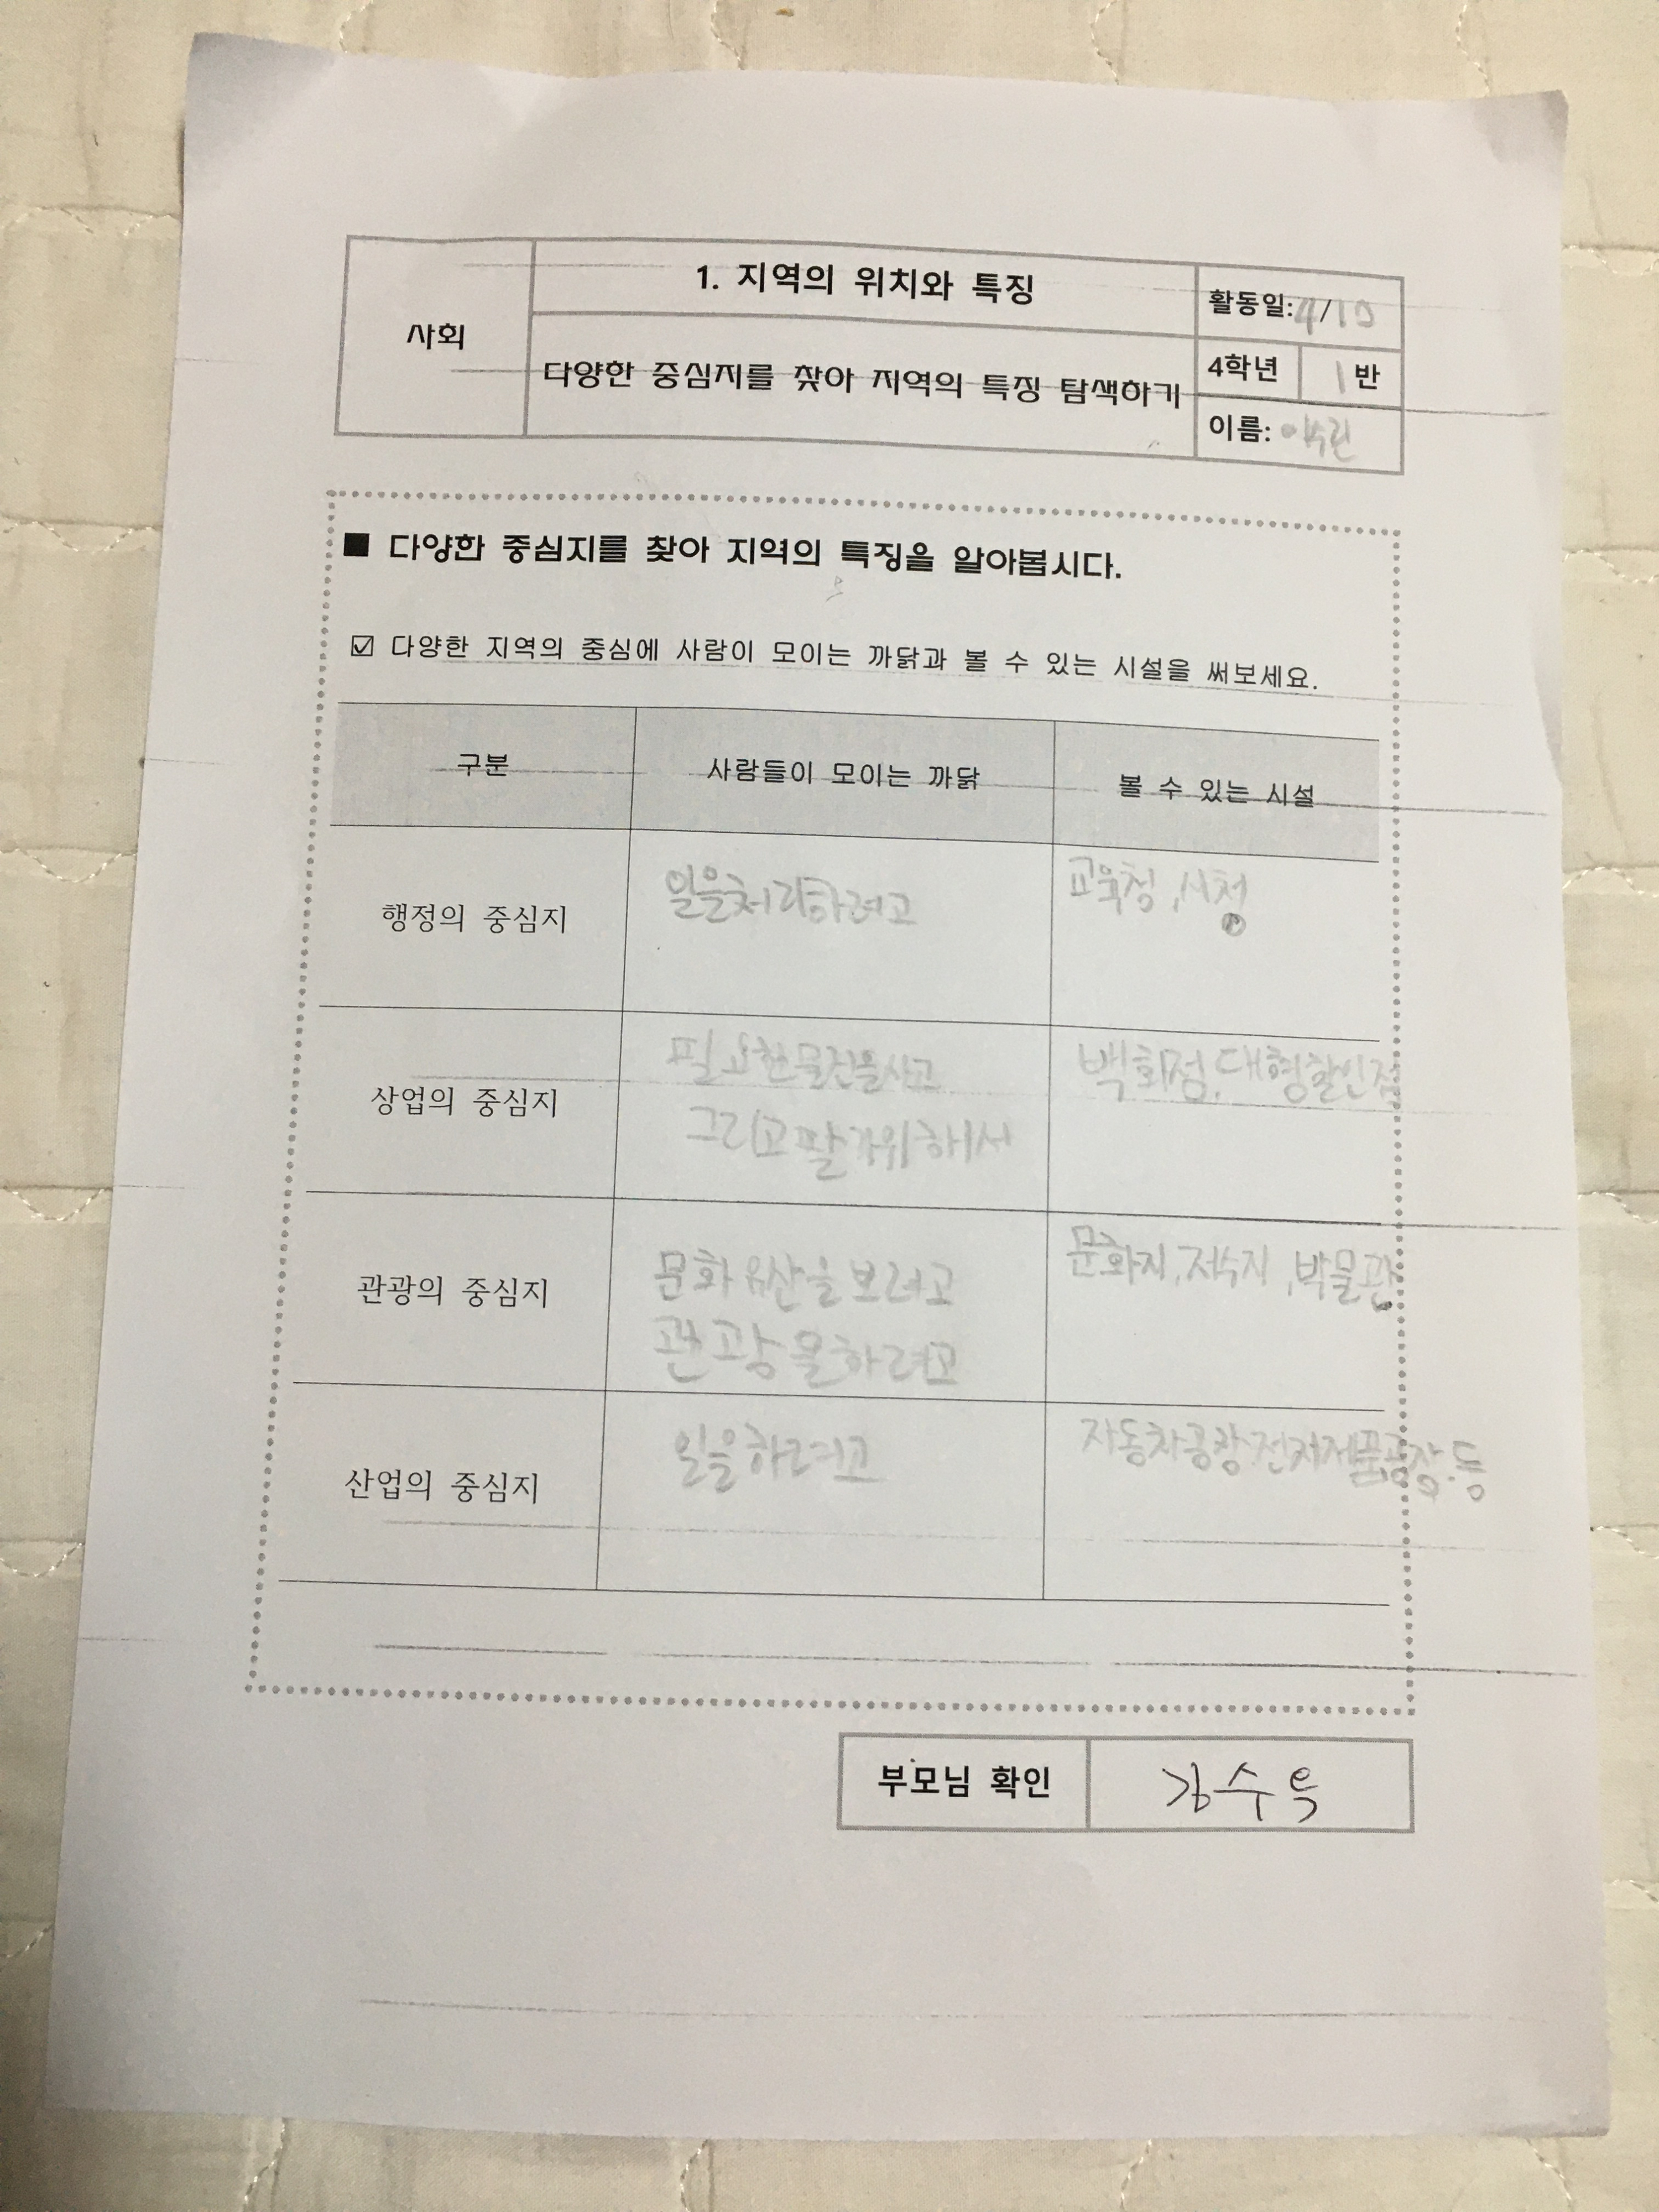 사회
1. 지역의 위치와 특징
다양한 중심지를 찾아 지역의 특징 탐색하기
활동일: 4/10
4학년 1반
이름: 이수린
■ 다양한 중심지를 찾아 지역의 특징을 알아봅시다.
☑ 다양한 지역의 중심에 사람이 모이는 까닭과 볼 수 있는 시설을 써보세요.
구분 사람들이 모이는 까닭 볼 수 있는 시설
행정의 중심지 일을처리하려고 교육청, 시청
상업의 중심지
필요한물건을사고
그리고팔기위해서
백화점, 대형할인점
관광의 중심지
문화유산을보려고
관광을하려고
문화지, 저수지, 박물관
산업의 중심지 일을하려고 자동차공장,전자제품공장,등
부모님 확인 김수옥